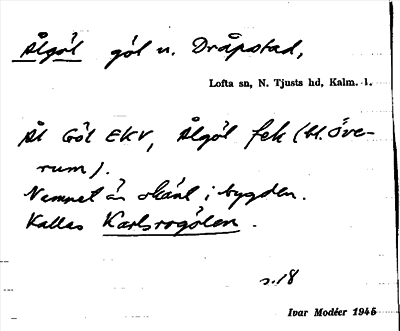 Ålgöl göl n. Dråpstad,
Lofta sn, N. Tjusts hd, Kalm. l.
Ål Göl EKV, Ålgöl fek (bl. Öve-
rum).
Namnet är okänt i bygden.
Kallas Karlsrogölen.
s. 18
Ivar Modéer 1946